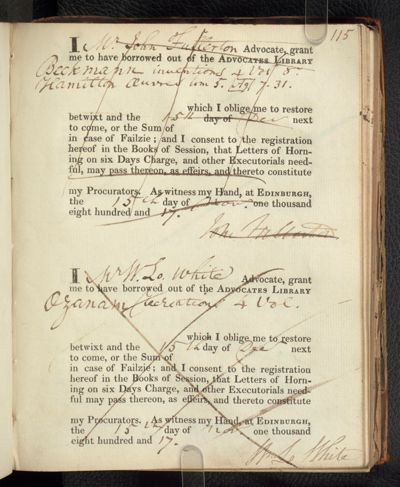 115
I Mr John Fullerton Advocate, grant
me to have borrowed out of the ADVOCATES LIBRARY
Beckmann inventions 4 Vol 8º
Hamilton Œuvres tom 5. 7. 31.
which I oblige me to restore
betwixt and the 15th day of Dec next
to come, or the Sum of
in case of Failzie; and I consent to the registration
hereof in the Books of Session, that Letters of Horn-
ing on six Days Charge, and other Executorials need-
ful, may pass thereon, as effeirs, and thereto constitute
my Procurators. As witness my Hand, at EDINBURGH,
the 15th day of Nov. one thousand
eight hundred and 17.
John Fullerton
I Mr W. Lo. White Advocate, grant
me to have borrowed out of the ADVOCATES LIBRARY
Ozanam Recreations 4 Vol.
which I oblige me to restore
betwixt and the 15th day of Dec next
to come, or the Sum of
in case of Failzie; and I consent to the registration
hereof in the Books of Session, that Letters of Horn-
ing on six Days Charge, and other Executorials need-
ful may pass thereon, as effeirs, and thereto constitute
my Procurators. As witness my Hand, at EDINBURGH,
the 15th day of Nov. one thousand
eight hundred and 17.
Wm Lo White